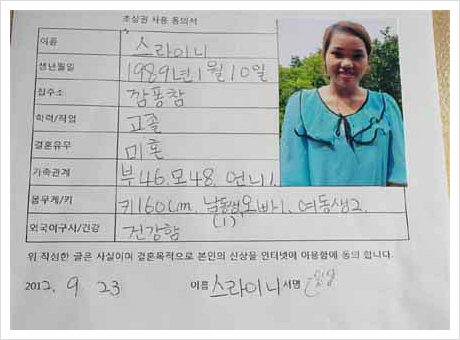 초상권 사용 동의서
이름 스라이니
생년월일 1989년 1월 10일
집주소 깜퐁참
학력/직업 고졸
결혼유무 미혼
가족관계 부46. 모48. 언니1.
몸무게/키 키160cm. 남동생, 오빠1. 여동생2.
(1)
외국어구사/건강 건강함
위 작성한 글은 사실이며 결혼목적으로 본인의 신상을 인터넷에 이용함에 동의 합니다.
2012. 9. 23 이름 스라이니 서명